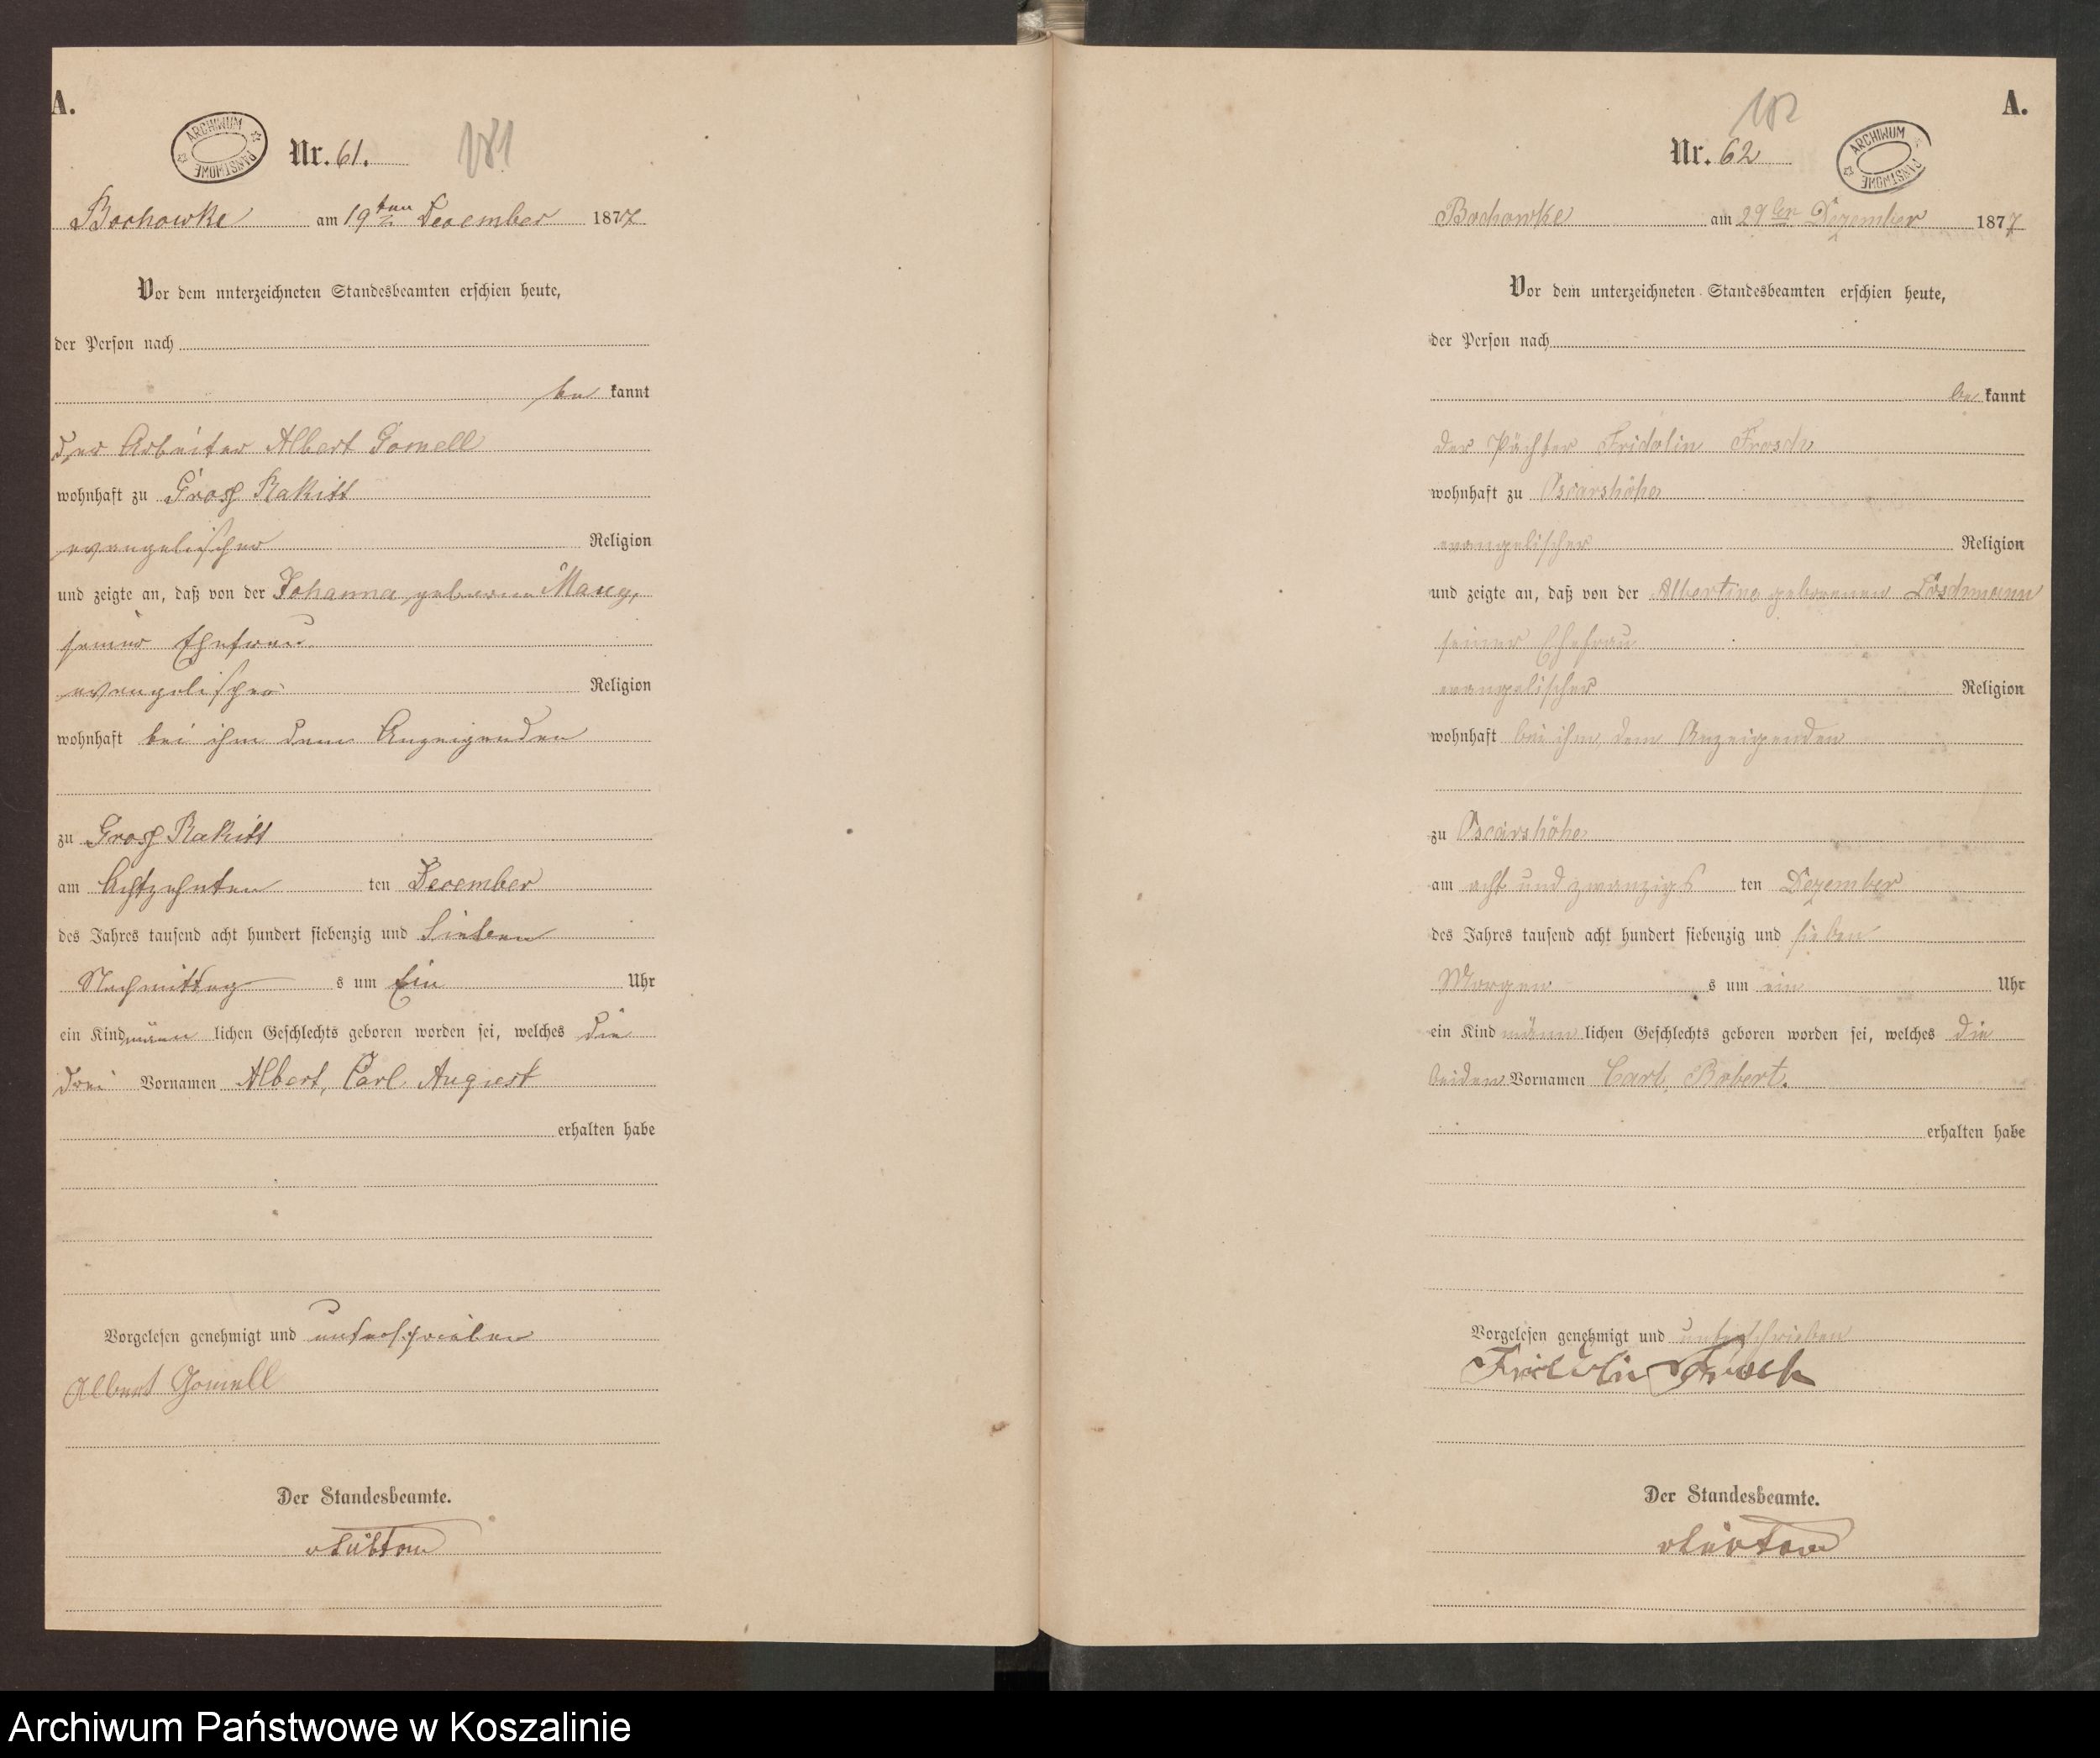 A.
ARCHIWUM PAŃSTWOWE
Nr. 61.
181
Bochowke am 19ten December 1877
Vor dem unterzeichneten Standesbeamten erschien heute,
der Person nach
be kannt
der Arbeiter Albert Gomell
wohnhaft zu Gross Rakitt
evangelischer Religion
und zeigte an, daß von der Johanna geborene
seiner Ehefrau
evangelischer Religion
wohnhaft bei ihm dem Anzeigenden
zu Gross Rakitt
am Achtzehnten ten December
des Jahres tausend acht hundert siebenzig und sieben
Nachmittag s um Ein Uhr
ein Kind männ lichen Geschlechts geboren worden sei, welches die
drei Vornamen Albert, Carl August
erhalten habe
Vorgelesen genehmigt und unterschrieben
Albert Gomell
Der Standesbeamte.
A.
182
Nr. 62
ARCHIWUM PAŃSTWOWE
Bochowke am 29ten Dezember 1877
Vor dem unterzeichneten Standesbeamten erschien heute,
der Person nach
be kannt
der Pächter Fridolin Frosch
wohnhaft zu Oscarshöhe
evangelischer Religion
und zeigte an, daß von der Albertine geborenen Löschmann
seiner Ehefrau
evangelischer Religion
wohnhaft bei ihm, dem Anzeigenden
zu Oscarshöhe
am acht und zwanzigs ten Dezember
des Jahres tausend acht hundert siebenzig und sieben
Morgen s um ein Uhr
ein Kind männ lichen Geschlechts geboren worden sei, welches die
beiden Vornamen Carl, Robert.
erhalten habe
Vorgelesen genehmigt und unterschrieben
Fridolin Frosch
Der Standesbeamte.
Archiwum Państwowe w Koszalinie